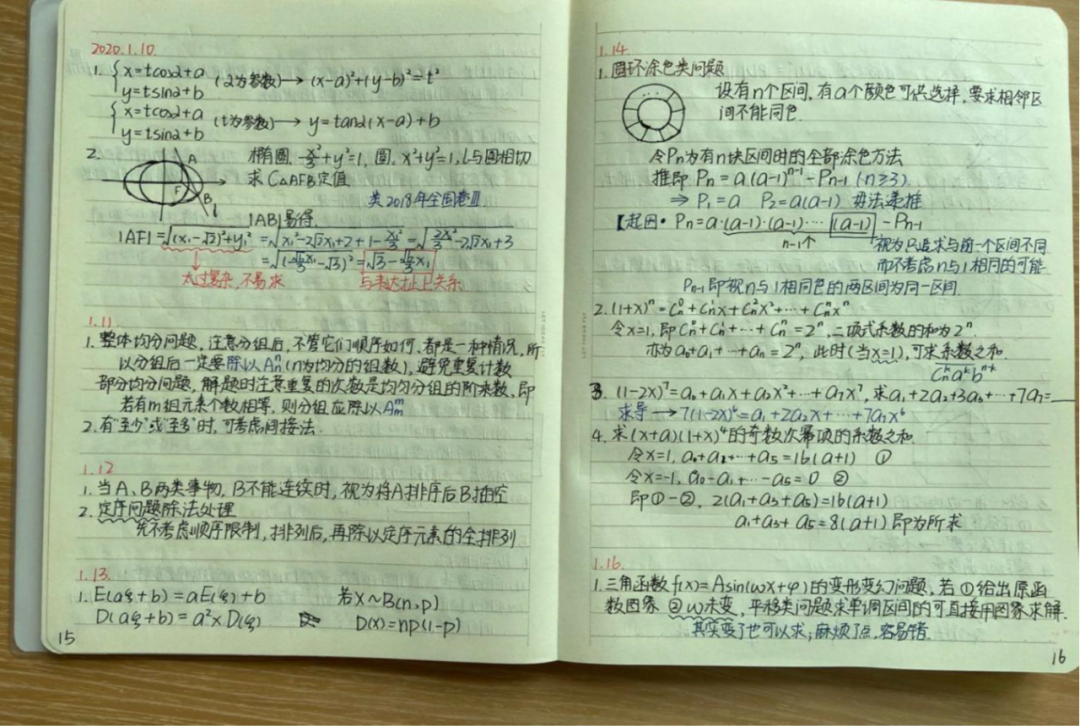 2020.1.10
1. { x=tcosα+a
y=tsinα+b (α为参数)→ (x-a)²+(y-b)²=t²
{ x=tcosα+a
y=tsinα+b (t为参数)→ y=tanα(x-a)+b
2. 椭圆 x²/3+y²=1, 圆 x²+y²=1, l与圆相切
A
F
B
l
求C△AFB定值
类2018年全国卷Ⅲ
|AB|易得
|AF|=√(x₁-√2)²+y₁² =√x₁²-2√2x₁+2+1-x₁²/3 =√2x₁²/3-2√2x₁+3
=√(√2/√3x₁-√3)² =√3-√2/√3x₁
太过复杂,不易求 与表达式上关系
1.11
1. 整体均分问题,注意分组后,不管它们顺序如何,都是一种情况,所
以分组后一定要除以Aₙⁿ(n为均分的组数),避免重复计数
部分均分问题,解题时注意重复的次数是均匀分组的阶乘数,即
若有m组元素个数相等,则分组应除以Aₘᵐ
2. 有“至少”或“至多”时,可考虑间接法.
1.12
1. 当A、B两类事物,B不能连续时,视为将A排序后B插空
2. 定序问题除法处理
先不考虑顺序限制,排列后,再除以定序元素的全排列
1.13
1. E(aξ+b)=aE(ξ)+b 若X~B(n,p)
D(aξ+b)=a²×D(ξ) D(X)=np(1-p)
15
1.14
1. 圆环涂色类问题
设有n个区间,有a个颜色可供选择,要求相邻区
间不能同色.
令Pn为有n块区间时的全部涂色方法
推即 Pn=a(a-1)ⁿ⁻¹-Pn-1 (n≥3)
⇒ P₁=a P₂=a(a-1) 毋法递推
【起因· Pn=a·(a-1)·(a-1)····(a-1)-Pn-1
n-1个 视为只追求与前一个区间不同
而不考虑n与1相同的可能
Pn-1即视n与1相同色的两区间为同一区间
2. (1+x)ⁿ=Cₙ⁰+Cₙ¹x+Cₙ²x²+···+Cₙⁿxⁿ
令x=1,即Cₙ⁰+Cₙ¹+···+Cₙⁿ=2ⁿ,二项式系数的和为2ⁿ
亦为a₀+a₁+···+aₙ=2ⁿ,此时(当x=1),可求系数之和.
Cₙᵏaᵏbⁿ⁻ᵏ
3. (1-2x)⁷=a₀+a₁x+a₂x²+···+a₇x⁷,求a₁+2a₂+3a₃+···+7a₇=___
求导→7(1-2x)⁶=a₁+2a₂x+···+7a₇x⁶
4. 求(x+a)(1+x)⁴的奇数次幂项的系数之和.
令x=1,a₀+a₁+···+a₅=16(a+1) ①
令x=-1,a₀-a₁+···-a₅=0 ②
即①-②,2(a₁+a₃+a₅)=16(a+1)
a₁+a₃+a₅=8(a+1)即为所求
1.16
1. 三角函数f(x)=Asin(ωx+φ)的变形变幻问题,若①给出原函
数图象 ②ω未变,平移类问题求单调区间的可直接用图象求解.
其实变了也可以求,麻烦了点,容易错.
16